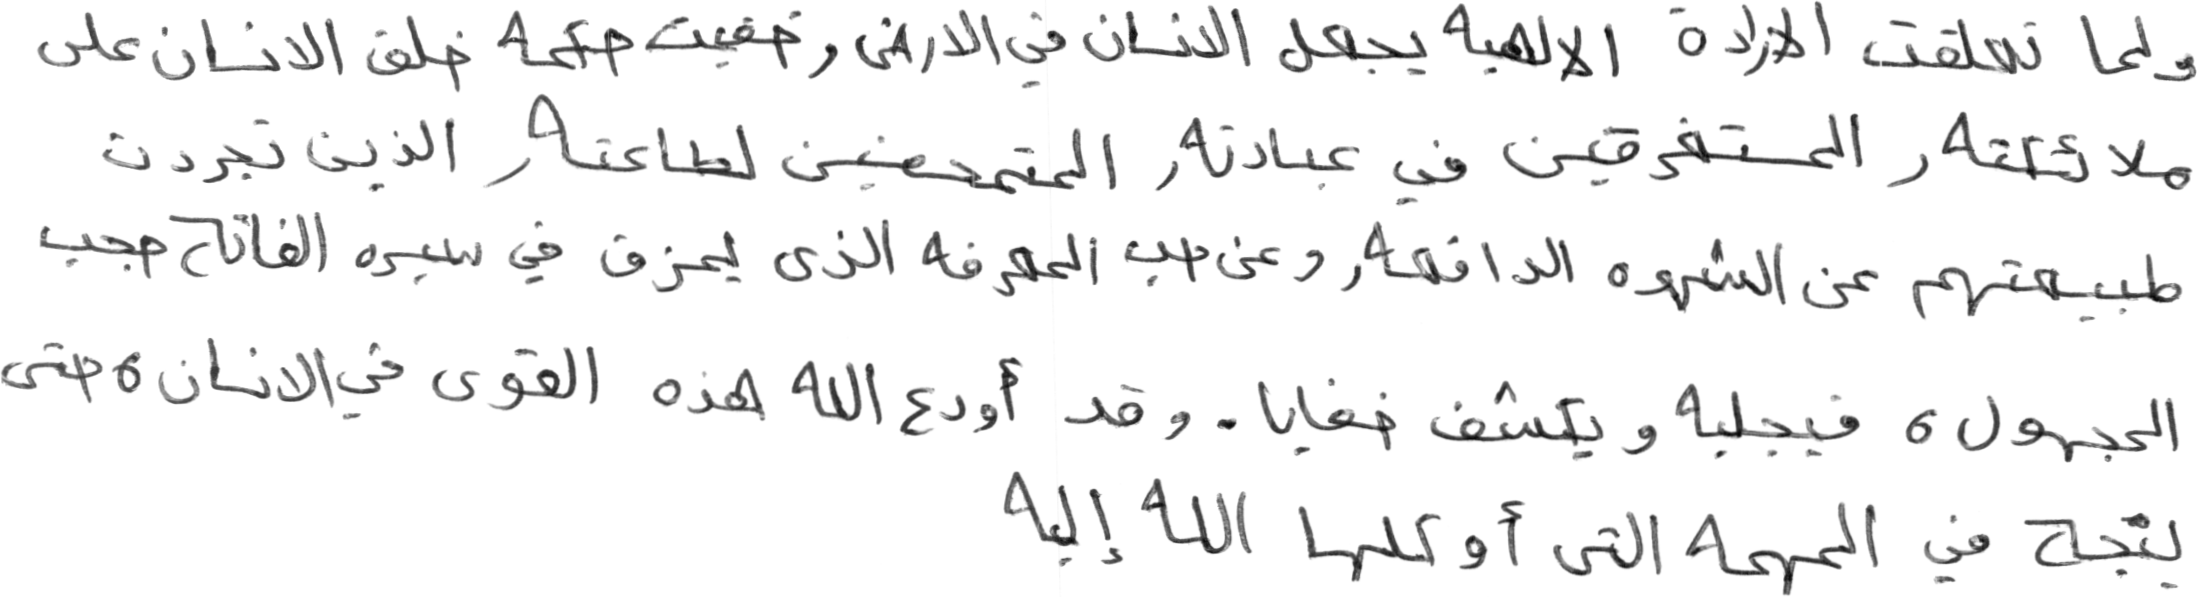 ولما تعلقت الارادة الالهية بجعل الانسان في الارض وخفيت حكمة خلق الانسان على
ملائكته، المستغرقين في عبادته، المتمحضين لطاعته، الذين تجردت
طبيعتهم عن الشهوه الدافعه، وعن حب المعرفه الذى يمزق في سيره الفاتح حجب
المجهول، فيجليه ويكشف خفايا. وقد أودع الله هذه القوى في الانسان، حتى
ينجح في المهمه التى أوكلها الله إليه